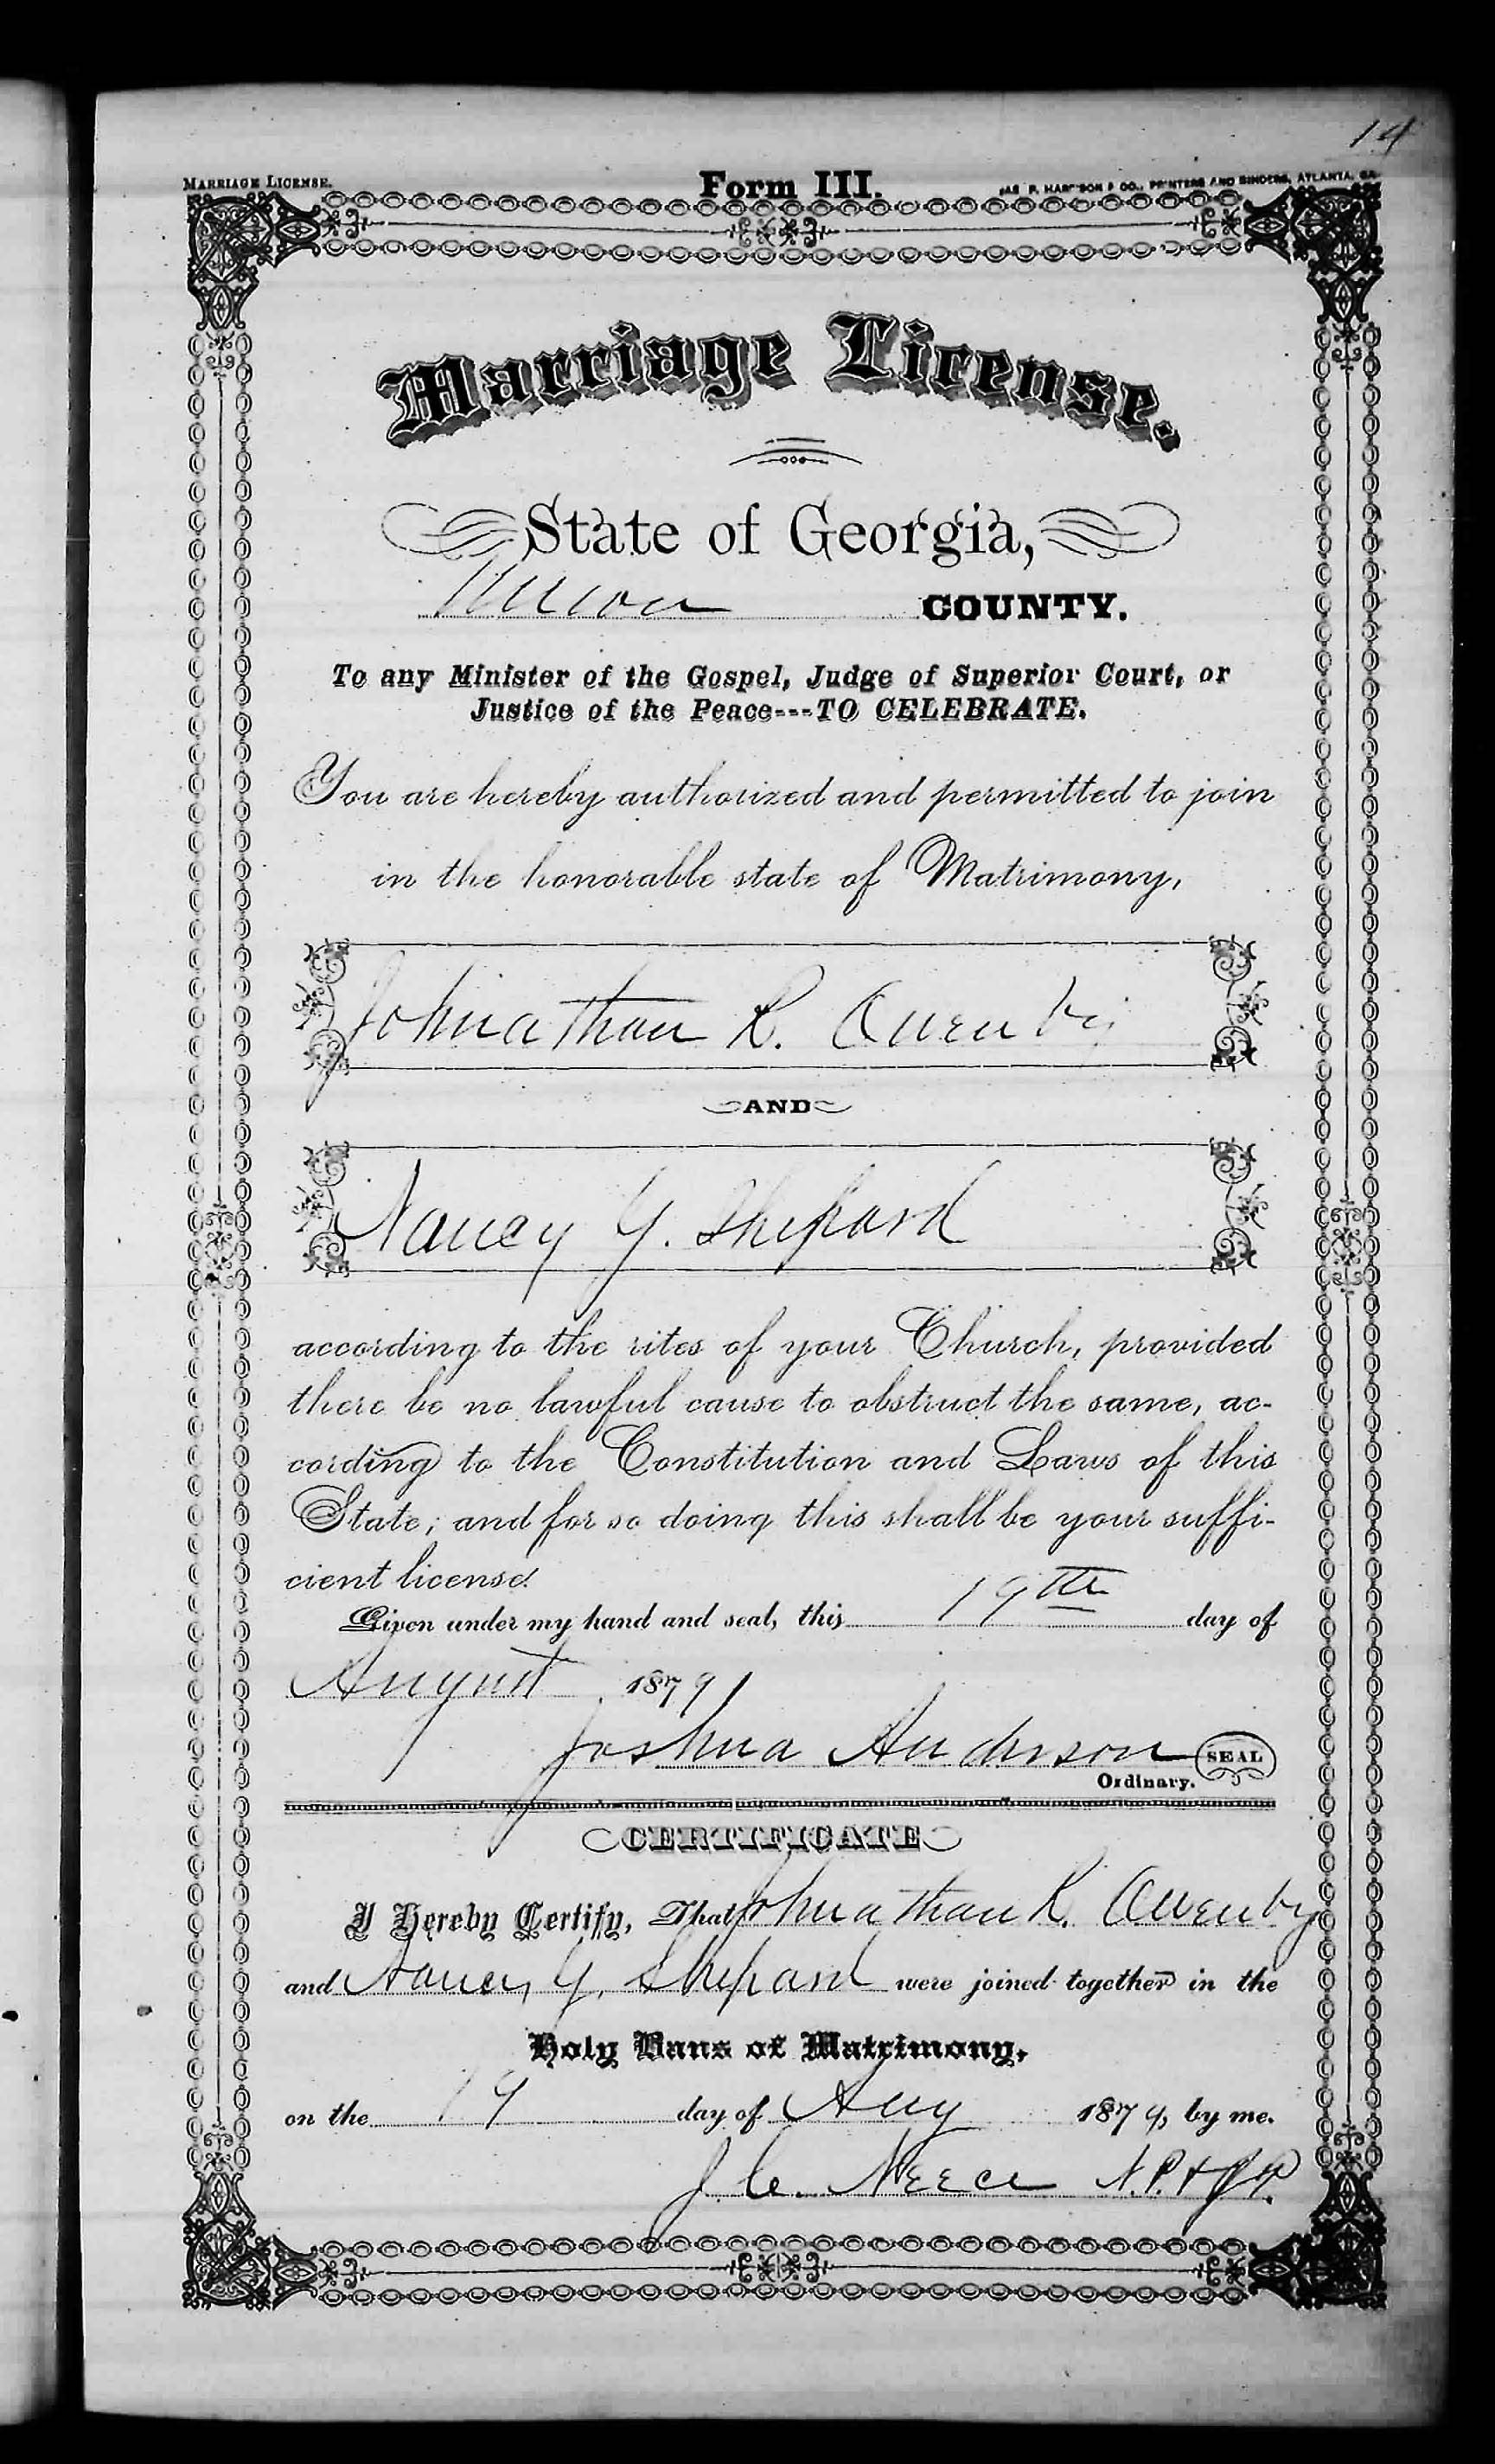 14
MARRIAGE LICENSE.
Form III.
JAS. P. HARRISON & CO., PRINTERS AND BINDERS, ATLANTA, GA.
Marriage License.
State of Georgia,
Union COUNTY.
To any Minister of the Gospel, Judge of Superior Court, or
Justice of the Peace---TO CELEBRATE.
You are hereby authorized and permitted to join
in the honorable state of Matrimony,
Johnathan R. Owenby
AND
Nancy Y. Shepard
according to the rites of your Church, provided
there be no lawful cause to obstruct the same, ac-
cording to the Constitution and Laws of this
State; and for so doing this shall be your suffi-
cient license.
Given under my hand and seal, this 19th day of
August 1879
Joshua Anderson SEAL
Ordinary.
CERTIFICATE
I Hereby Certify, That Johnathan R. Owenby
and Nancy Y. Shepard were joined together in the
Holy Bans of Matrimony,
on the 19 day of Aug 1879, by me.
J. C. Neece N.P. & J.P.